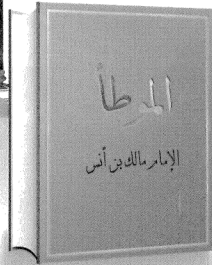 الموطأ
الإمام مالك بن أنس